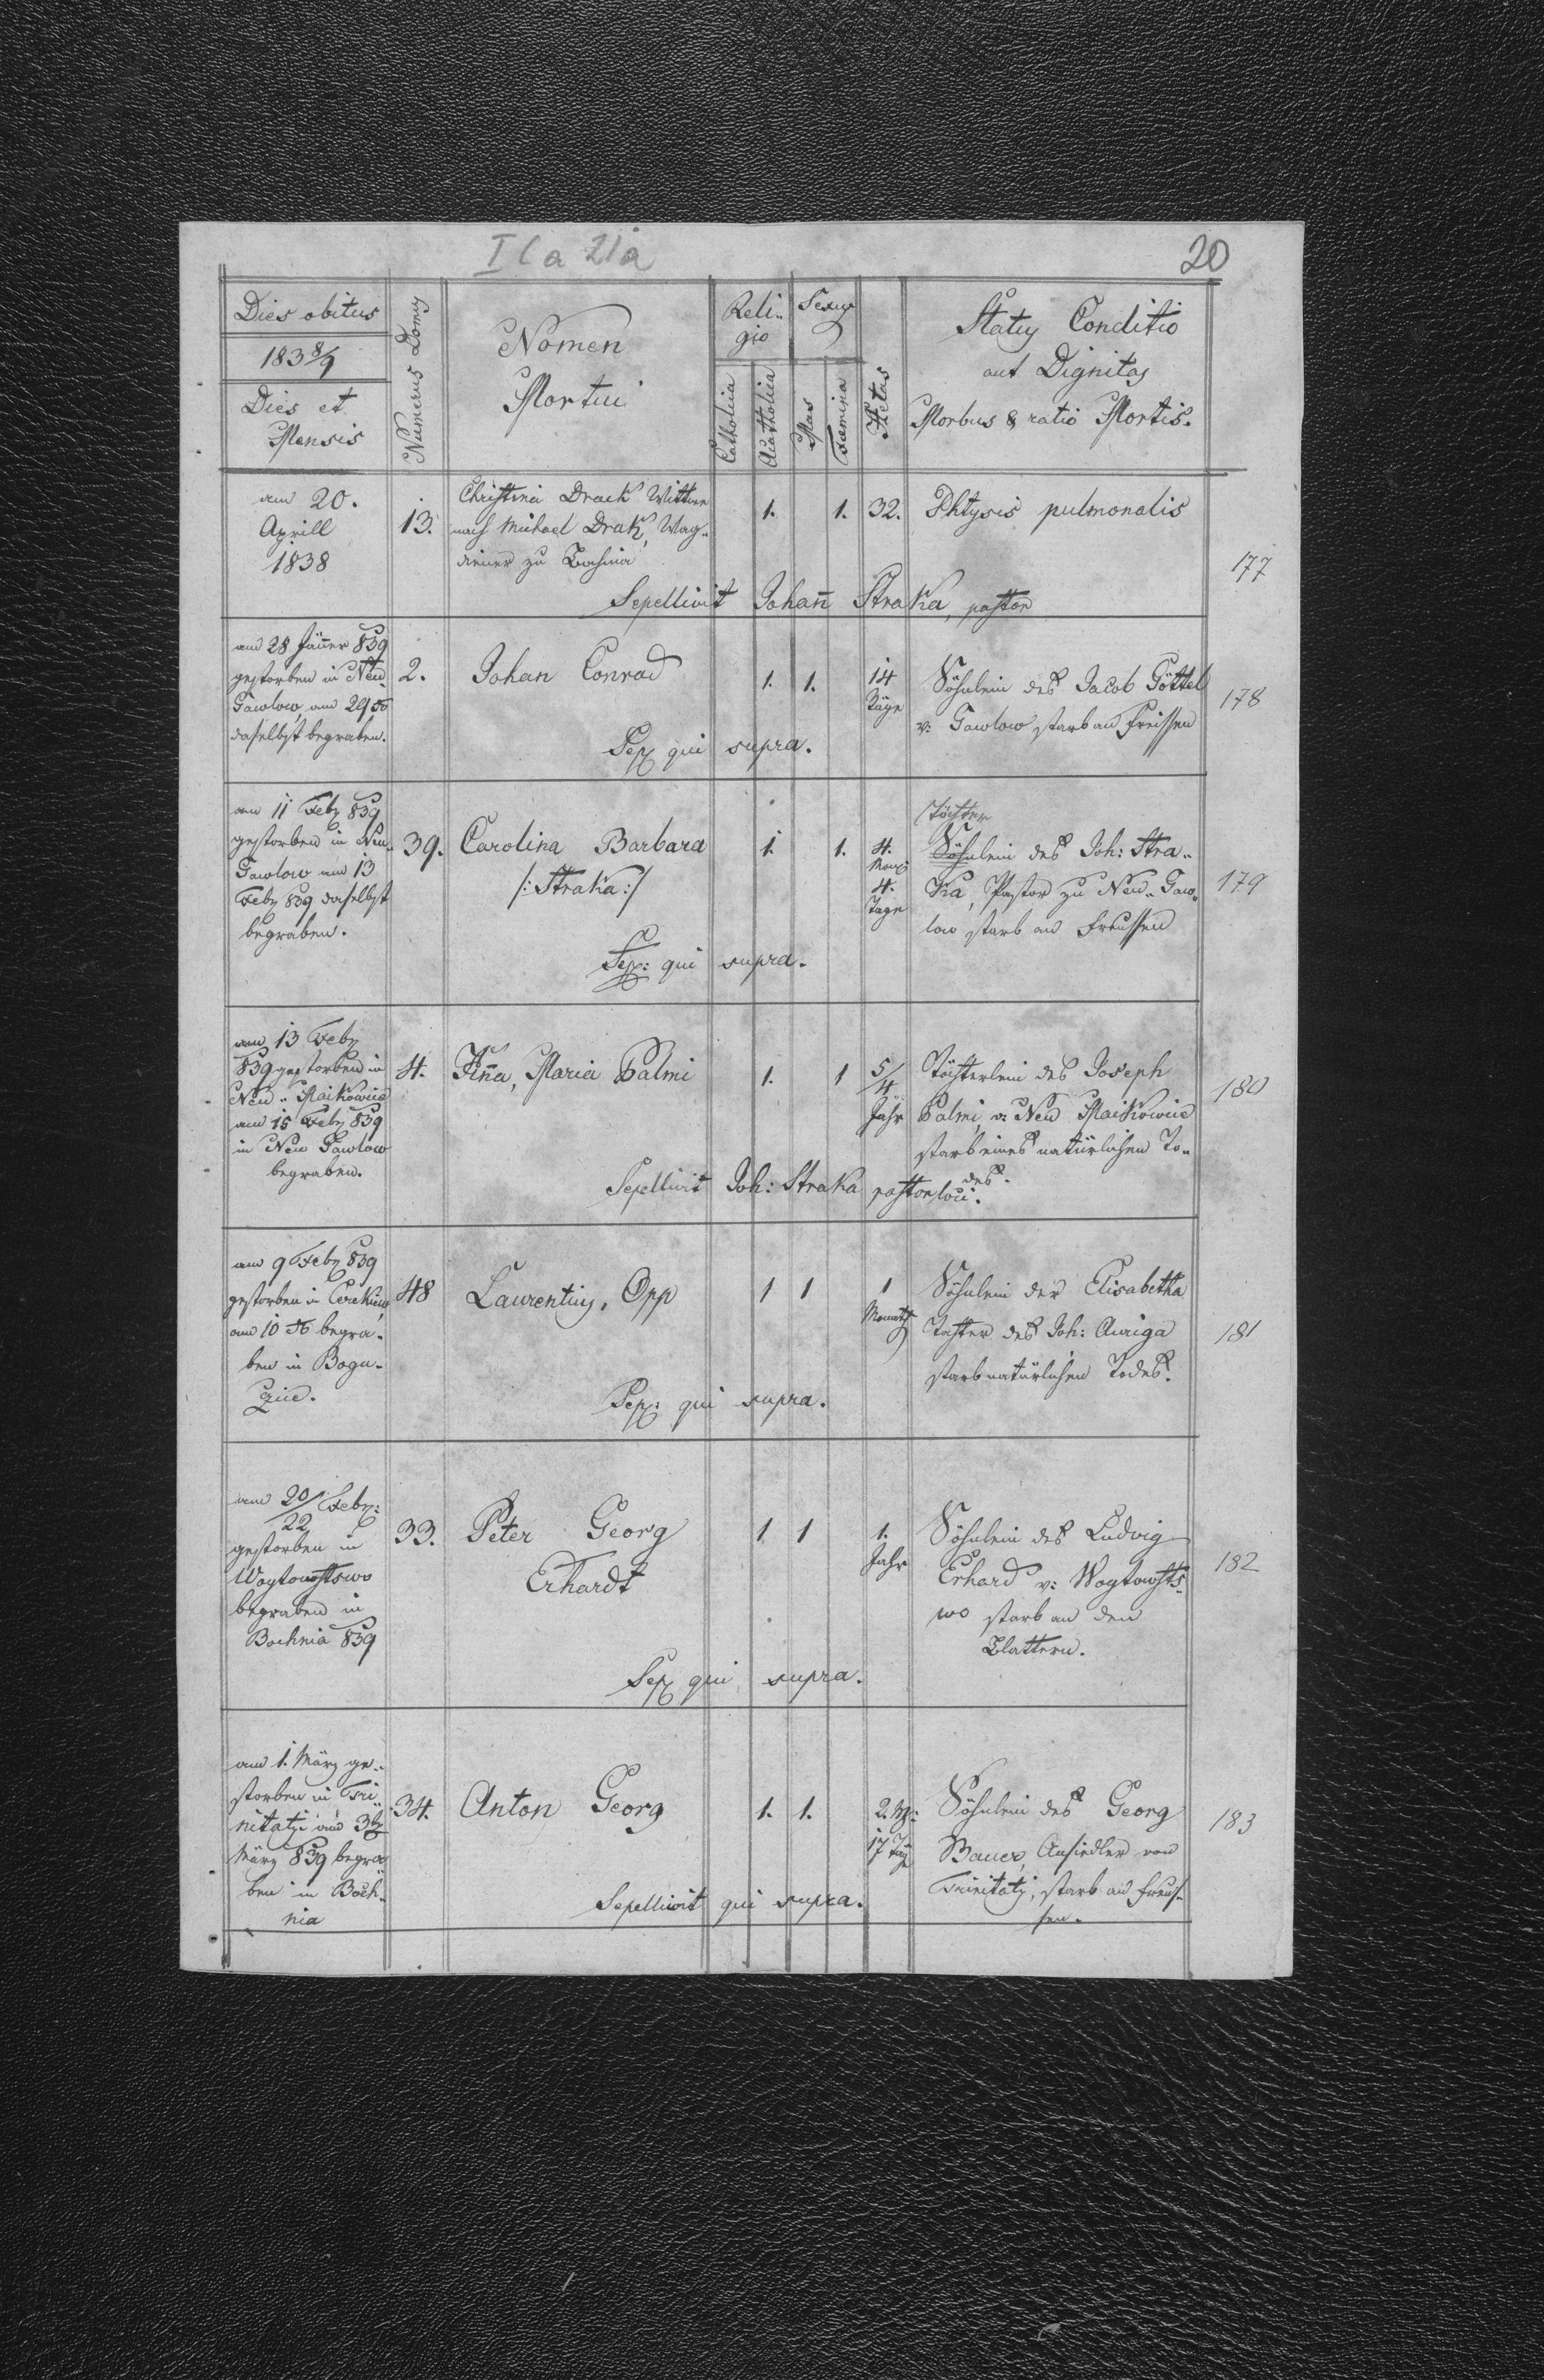 I C a 21a
20
Dies obitus
183 8/9
Dies et
Mensis
Numerus Domus
Nomen
Mortui
Reli-
gio
Catholica
Acatholica
Sexus
Mas
Foemina
Aetas
Status Conditio
aut Dignitas
Morbus & ratio Mortis.
am 20.
Aprill
1838
13.
Christina Drack Wittwe
nach Michael Drak, Wag-
diener zu Bochnia
1.
1.
32.
Phtysis pulmonalis
Sepellivit Johann Straka, pastor
177
am 28 Jänner 839
gestorben in Neu
Gawlow am 29
daselbst begraben.
2.
Johan Conrad
1.
1.
14
Täge
Söhnlein des Jacob Göttel
v: Gawlow starb an Freissen
Sep qui supra.
178
am 11 Feb 839
gestorben in Neu-
Gawlow am 13
Feb 839 daselbst
begraben.
39.
Carolina Barbara
/: Straka :/
1.
1.
4.
Mon:
4.
Tage
Töchter
Söhnlein des Joh: Stra-
ka, Pastor zu Neu-Gaw-
low starb an Freussen
Sep: qui supra.
179
am 13 Feb
839 gestorben in
Neu-Maikowice
am 15 Feb 839
in Neu Gawlow
begraben.
4.
Anna, Maria Palmi
1.
1
5/4
Jahr
Töchterlein des Joseph
Palmi, v: Neu Maikowice
starb eines natürlichen To-
des.
Sepellivit Joh: Straka pastor loci.
180
am 9 Feb 839
gestorben in Cerekiew
am 10 begra-
ben in Bogu-
czice.
48
Laurentius, Opp
1
1
1
Monath
Söhnlein der Elisabetha
Tochter des Joh: Auriga
starb natürlichen Todes.
Sep: qui supra.
181
am 20/22 Feb:
gestorben in
Woytowstwo
begraben in
Bochnia 839
33.
Peter Georg
Erhardt
1
1
1.
Jahr
Söhnlein des Ludwig
Erhard v: Woytowsts-
wo starb an den
Blattern.
Sep qui supra.
182
am 1. März ge-
storben in Tri-
nitatis am 3
März 839 begra-
ben in Boch-
nia
34.
Anton Georg
1.
1.
2. M:
17 Täge
Söhnlein des Georg
Bauer, Ansiedler von
Trinitatis, starb an Freus-
sen.
Sepellivit qui supra.
183